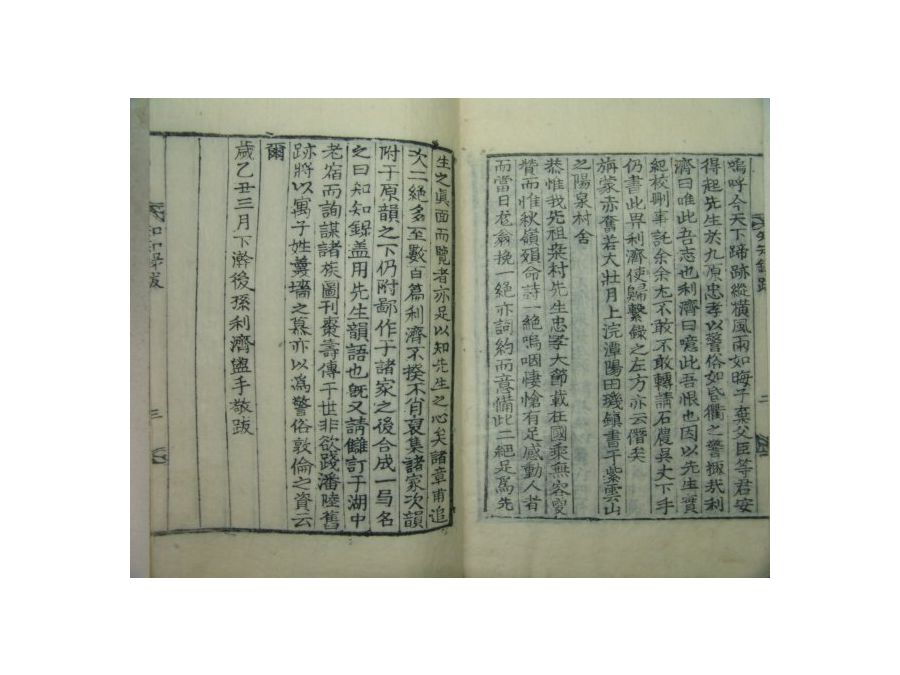 嗚呼今天下蹄跡縱橫風雨如晦子棄父臣等君安
得起先生於九原忠孝以警俗如昏衢之警撽哉利
濟曰唯此吾志也利濟曰噫此吾恨也因以先生實
紀校刪事託余余尤不敢不敢轉請石農吳丈下手
仍書此畀利濟使歸繫錄之左方亦云僭矣
旃蒙赤奮若大壯月上浣潭陽田璣鎮書于紫雲山
之陽泉村舍
恭惟我先祖 村先生忠孝大節載在國乘無容
贊而惟秋嶺 命詩一絕嗚咽悽愴有足感動人者
而當日老翁挽一絕亦詞約而意備此二絕足爲先
知知錄跋
二
生之眞面而覽者亦足以知先生之心矣諸章甫追
次二絕多至數百篇利濟不揆不肖裒集諸家次韻
附于原韻之下仍附鄙作于諸家之後合成一 名
之曰知知錄盖用先生韻語也旣又請讎訂于湖中
老宿而詢謀諸族圖刊棗壽傳于世非欲踐潘陸舊
跡將以寓子姓羹墻之慕亦以爲警俗敦倫之資云
爾
歲乙丑三月下澣後孫利濟盥手敬跋
知知錄跋
三